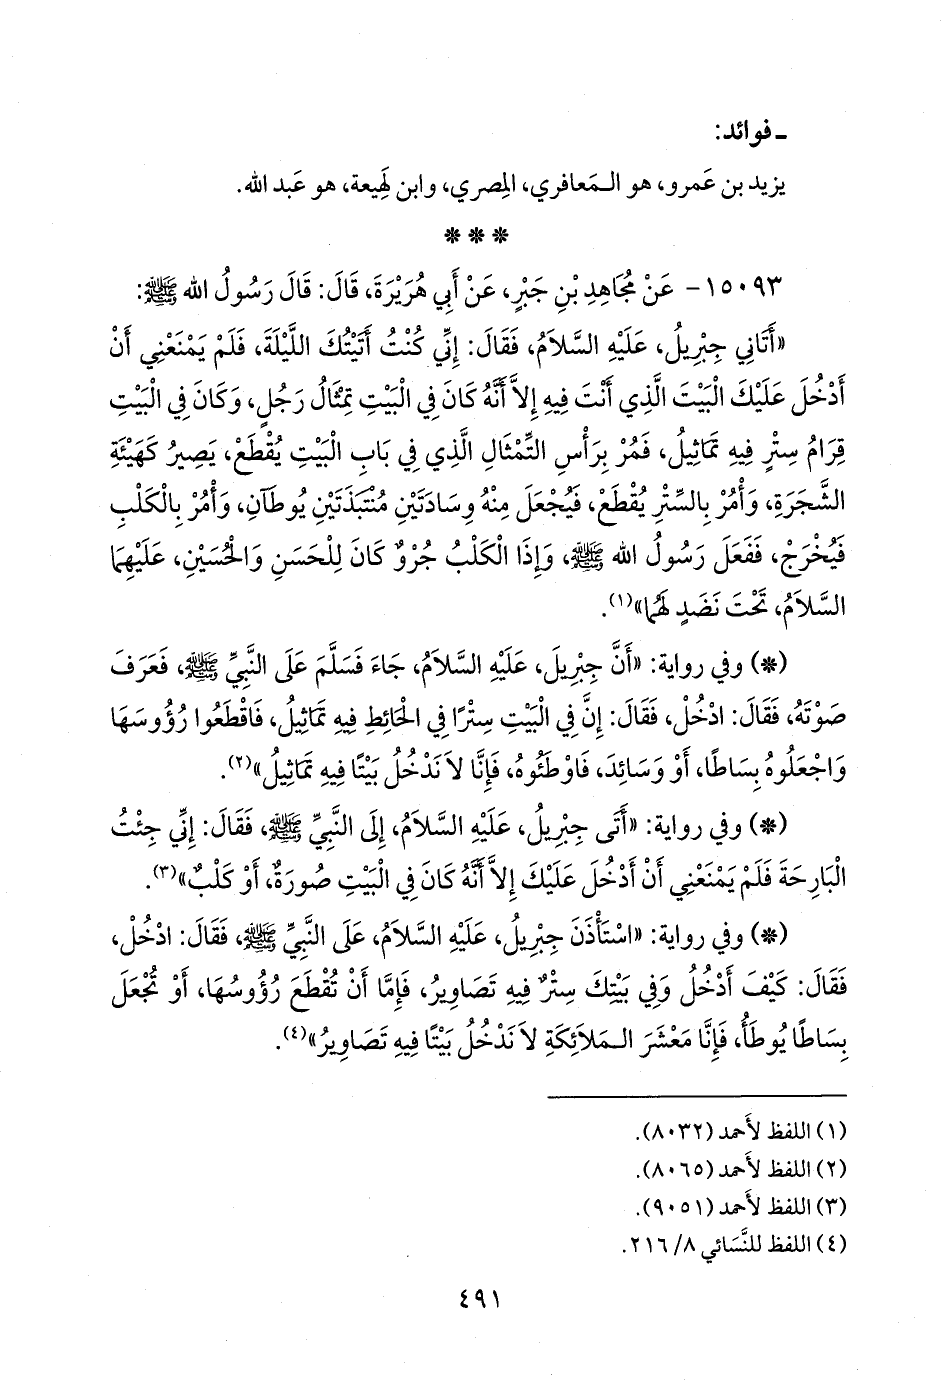 ـ فوائد:
يزيد بن عَمرو، هو الـمَعافري، المِصري، وابن لَهِيعة، هو عَبد الله.
* * *
١٥٠٩٣- عَنْ مُجَاهِدِ بْنِ جَبْرٍ، عَنْ أَبِي هُرَيْرَةَ، قَالَ: قَالَ رَسُولُ الله ﷺ:
«أَتَانِي جِبْرِيلُ، عَلَيْهِ السَّلاَمُ، فَقَالَ: إِنِّي كُنْتُ أَتَيْتُكَ اللَّيْلَةَ، فَلَمْ يَمْنَعْنِي أَنْ
أَدْخُلَ عَلَيْكَ الْبَيْتَ الَّذِي أَنْتَ فِيهِ إِلاَّ أَنَّهُ كَانَ فِي الْبَيْتِ تِمْثَالُ رَجُلٍ، وَكَانَ فِي الْبَيْتِ
قِرَامُ سِتْرٍ فِيهِ تَمَاثِيلُ، فَمُرْ بِرَأْسِ التِّمْثَالِ الَّذِي فِي بَابِ الْبَيْتِ يُقْطَعْ، يَصِيرُ كَهَيْئَةِ
الشَّجَرَةِ، وَأْمُرْ بِالسِّتْرِ يُقْطَعْ، فَيُجْعَلَ مِنْهُ وِسَادَتَيْنِ مُنْتَبَذَتَيْنِ يُوطَآنِ، وَأْمُرْ بِالْكَلْبِ
فَيُخْرَجْ، فَفَعَلَ رَسُولُ الله ﷺ، وَإِذَا الْكَلْبُ جُرْوٌ كَانَ لِلْحَسَنِ وَالْحُسَيْنِ، عَلَيْهِمَا
السَّلاَمُ، تَحْتَ نَضَدٍ لَهُمَا»(١).
(*) وفي رواية: «أَنَّ جِبْرِيلَ، عَلَيْهِ السَّلاَمُ، جَاءَ فَسَلَّمَ عَلَى النَّبِيِّ ﷺ، فَعَرَفَ
صَوْتَهُ، فَقَالَ: ادْخُلْ، فَقَالَ: إِنَّ فِي الْبَيْتِ سِتْرًا فِي الْحَائِطِ فِيهِ تَمَاثِيلُ، فَاقْطَعُوا رُؤُوسَهَا
وَاجْعَلُوهُ بِسَاطًا، أَوْ وَسَائِدَ، فَاوْطَئُوهُ، فَإِنَّا لاَ نَدْخُلُ بَيْتًا فِيهِ تَمَاثِيلُ»(٢).
(*) وفي رواية: «أَتَى جِبْرِيلُ، عَلَيْهِ السَّلاَمُ، إِلَى النَّبِيِّ ﷺ، فَقَالَ: إِنِّي جِئْتُ
الْبَارِحَةَ فَلَمْ يَمْنَعْنِي أَنْ أَدْخُلَ عَلَيْكَ إِلاَّ أَنَّهُ كَانَ فِي الْبَيْتِ صُورَةٌ، أَوْ كَلْبٌ»(٣).
(*) وفي رواية: «اسْتَأْذَنَ جِبْرِيلُ، عَلَيْهِ السَّلاَمُ، عَلَى النَّبِيِّ ﷺ، فَقَالَ: ادْخُلْ،
فَقَالَ: كَيْفَ أَدْخُلُ وَفِي بَيْتِكَ سِتْرٌ فِيهِ تَصَاوِيرُ، فَإِمَّا أَنْ تُقْطَعَ رُؤُوسُهَا، أَوْ تُجْعَلَ
بِسَاطًا يُوطَأُ، فَإِنَّا مَعْشَرَ الـمَلاَئِكَةِ لاَ نَدْخُلُ بَيْتًا فِيهِ تَصَاوِيرُ»(٤).
(١) اللفظ لأَحمد (٨٠٣٢).
(٢) اللفظ لأَحمد (٨٠٦٥).
(٣) اللفظ لأَحمد (٩٠٥١).
(٤) اللفظ للنَّسَائي ٨/ ٢١٦.
٤٩١